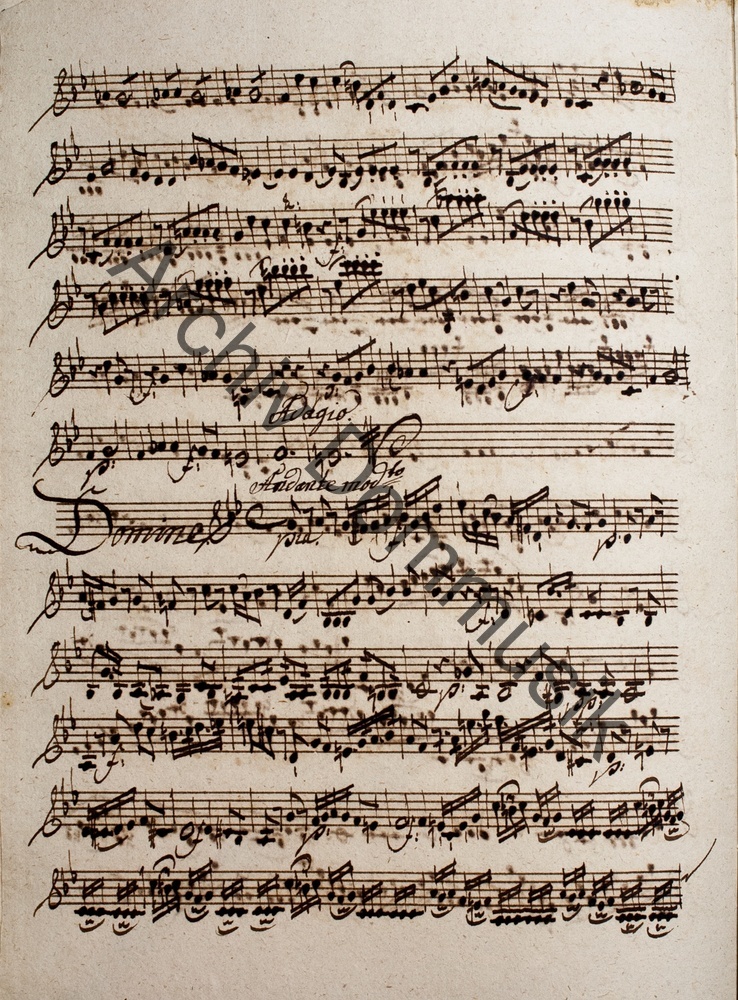 f.
f.
p.
Adagio.
p. f.
Andante modto
Domine
pia. f. p.
f.
p. p.
f. p.
f. p. f.
Archiv Dommusik